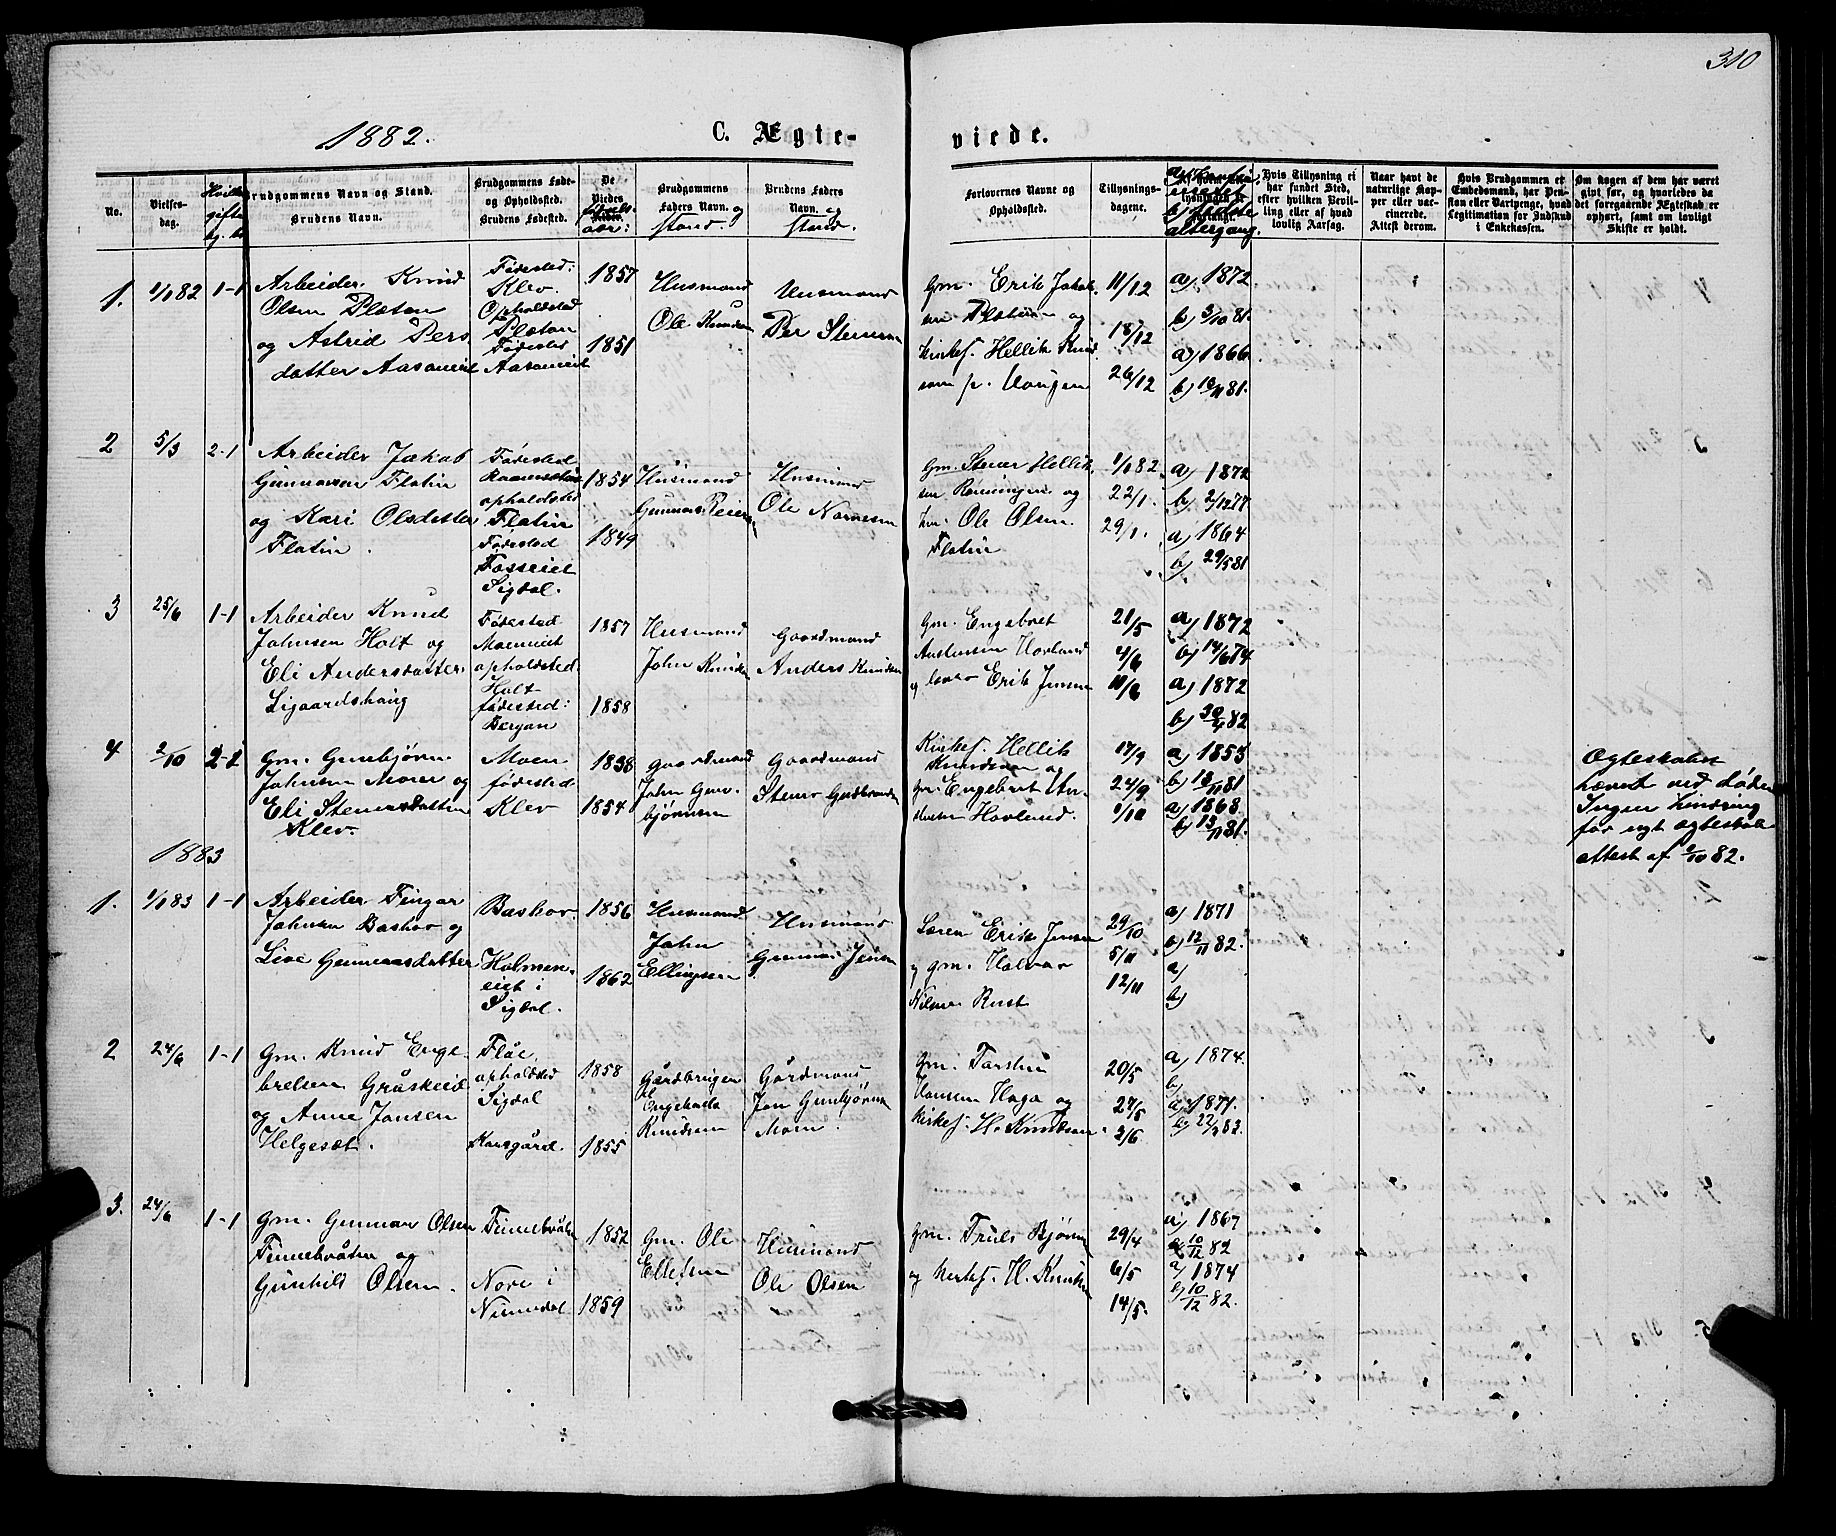 310
1882. C. Ægte- viede.
No.
Vielses-
dag.
Brudgommens Navn og Stand.
Brudens Navn.
Brudgommens Føde-
og Opholdssted.
Brudens Fødested.
De
Viedes
Brudgommens
Faders Navn. og
stand.
Brudens Faders
Navn.
stand.
Forlovernes Navne og
Opholdssted.
Tillysnings-
dagene.
altergang.
Hvis Tillysning ei
har fundet Sted,
efter hvilken Bevil-
ling eller af hvad
lovlig Aarsag.
Naar havt de
naturlige Kop-
per eller vac-
cinerede.
Attest derom.
Hvis Brudgommen er
Embedsmand, har Pen-
sion eller Vartpenge, hvad
Legitimation for Indskud
i Enkekassen.
Om Nogen af dem har været
gift før, og hvorledes da
det foregaaende Ægteskab er
ophørt, samt om lovligt
Skifte er holdt.
1. 1/1 82 1-1
Arbeider Knud
Olsen Pløten
og Astrid Pers
datter Aasaneiet
Fødested:
Klev.
Opholdssted
Pløten
Fødested
Aasaneiet
1857
1851
Husmand
Ole Knudsen
Husmand
Per Stensen
Gm. Erik Jakob.
sen Pløten og
Kirkes. Hellik Knud
sen p. Haugen
11/12
18/12
26/12
a) 1872
b) 3/10 81.
a) 1866
b) 13/11 81.
2 5/3 2-1
Arbeider Jakob
Gunnarsen Flatin
og Kari Olsdatter
Flatin.
Fødested
opholdsted
Flatin
Fødested
Fosseiet
Sigdal.
1854
1849
Husmand
Gunnar
Husmand
Ole
Gm. Stener Hellik.
sen Rønningen og
Ole Olsen
Flatin
1/1 82.
22/1.
29/1.
a) 1872
b) 2/12 77
a) 1864
b) 29/5 81
3 25/6 1-1
Arbeider Knud
Johnsen Holt og
Eli Andersdatter
Ligaardshaug
Fødested
Moeneiet
opholdsted.
Holt
fødested:
Bergan
1857
1858
Husmand
John Knudsen
Gaardmand
Anders Knudsen
Gm. Engebret
Austensen Hovland
og Erik Jensen
21/5
4/6
11/6
a) 1872
b) 14/6 74
a) 1872
b) 30/4 82
4 2/10 2-1
Gm. Gunbjørn
Johnsen Moen og
Eli Stensdatter
Klev.
Moen
fødested
Klev
1838
1854
Gaardmand
John Gun-
bjørnsen
Gaardmand
Sten Gudbrandsen
Kirkes. Hellik
Knudsen og
Gm. Engebret
Hovland.
17/9
24/9
1/10
a) 1853
b) 13/11 81
a) 1868
b) 13/11 81.
Ægteskabet
hævet ved døden
Ingen hindring
for nyt ægteskab
attest af 2/10 82.
1883
1. 1/1 83 1-1
Arbeider Fingar
Johnsen Bashov og
Live Gunnarsdatter
Bashov
Holmen-
eiet i
Sigdal.
1856
1862
Husmand
John
Ellingsen
Husmand
Gunnar Jensen
Læren Erik Jensen
og Gm. Halvor
Nilsen Rust
29/10
5/11
12/11
a) 1871
b) 12/11 82.
a)
b)
2 24/6 1-1
Gm. Knud Enge-
bretsen Gråskeid
og Anne Jansen
Helgeset.
Flåe,
opholdsted
Sigdal
Karsgård.
1858
1855
Gårdbruger
Engebret
Knudsen
Gårdmand
Jon Gunbjørnsen
Moen.
Gm. Torstein
Hansen Haga og
Kirkes. H. Knudsen.
20/5
27/5
3/6
a) 1874.
b)
a) 1871.
b) 22/3 83.
3. 24/6 1-1
Gm. Gunnar Olsen
Tunnebråten og
Gunhild Olsen.
Tunnebråten
Nore i
Numedal
1852
1859
Gm. Ole
Ellefsen
Husmand
Ole Olsen
Gm. Truls Bjørnsen
og Kirkes. H. Knudsen
29/4
6/5
14/5.
a) 1867
b) 10/12 82
a) 1874
b) 10/12 82.